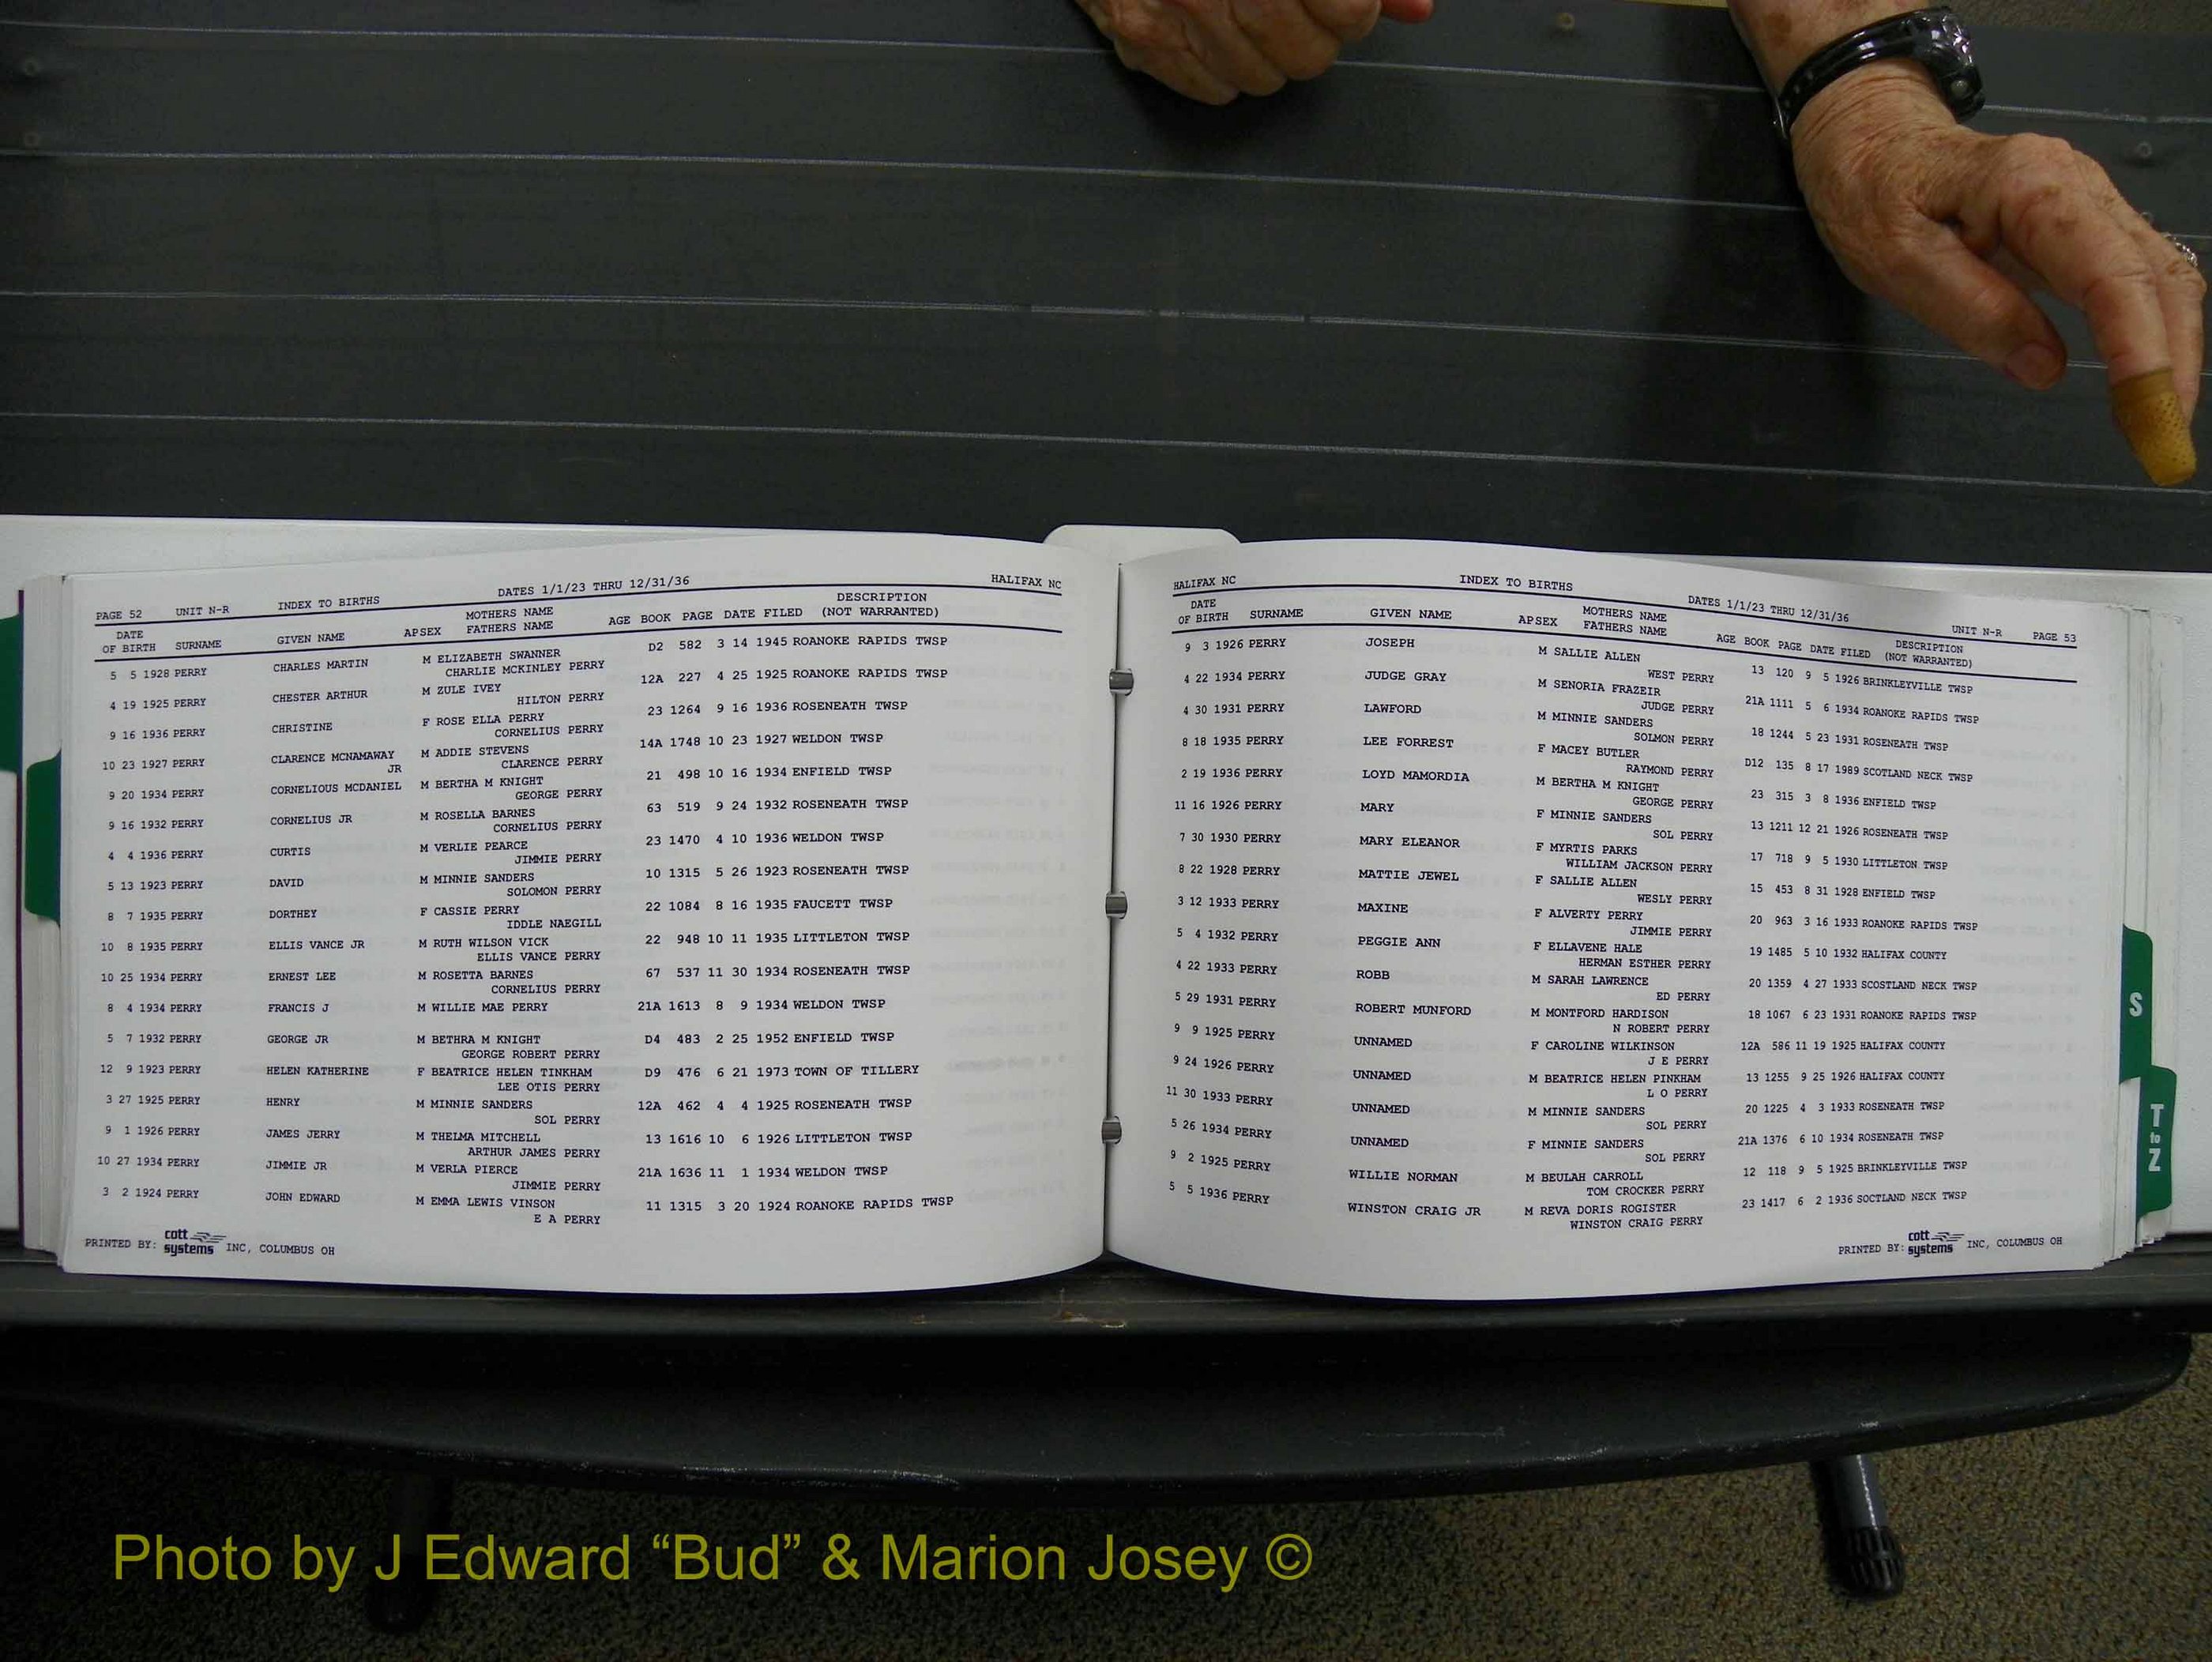 PAGE 52 UNIT N-R INDEX TO BIRTHS DATES 1/1/23 THRU 12/31/36 HALIFAX NC
DATE OF BIRTH SURNAME GIVEN NAME APSEX MOTHERS NAME FATHERS NAME AGE BOOK PAGE DATE FILED DESCRIPTION (NOT WARRANTED)
5 5 1928 PERRY CHARLES MARTIN M ELIZABETH SWANNER D2 582 3 14 1945 ROANOKE RAPIDS TWSP
CHARLIE MCKINLEY PERRY
4 19 1925 PERRY CHESTER ARTHUR M ZULE IVEY 12A 227 4 25 1925 ROANOKE RAPIDS TWSP
HILTON PERRY
9 16 1936 PERRY CHRISTINE F ROSE ELLA PERRY 23 1264 9 16 1936 ROSENEATH TWSP
CORNELIUS PERRY
10 23 1927 PERRY CLARENCE MCNAMAWAY M ADDIE STEVENS 14A 1748 10 23 1927 WELDON TWSP
JR CLARENCE PERRY
9 20 1934 PERRY CORNELIOUS MCDANIEL M BERTHA M KNIGHT 21 498 10 16 1934 ENFIELD TWSP
GEORGE PERRY
9 16 1932 PERRY CORNELIUS JR M ROSELLA BARNES 63 519 9 24 1932 ROSENEATH TWSP
CORNELIUS PERRY
4 4 1936 PERRY CURTIS M VERLIE PEARCE 23 1470 4 10 1936 WELDON TWSP
JIMMIE PERRY
5 13 1923 PERRY DAVID M MINNIE SANDERS 10 1315 5 26 1923 ROSENEATH TWSP
SOLOMON PERRY
8 7 1935 PERRY DORTHEY F CASSIE PERRY 22 1084 8 16 1935 FAUCETT TWSP
IDDLE NAEGILL
10 8 1935 PERRY ELLIS VANCE JR M RUTH WILSON VICK 22 948 10 11 1935 LITTLETON TWSP
ELLIS VANCE PERRY
10 25 1934 PERRY ERNEST LEE M ROSETTA BARNES 67 537 11 30 1934 ROSENEATH TWSP
CORNELIUS PERRY
8 4 1934 PERRY FRANCIS J M WILLIE MAE PERRY 21A 1613 8 9 1934 WELDON TWSP
5 7 1932 PERRY GEORGE JR M BETHRA M KNIGHT D4 483 2 25 1952 ENFIELD TWSP
GEORGE ROBERT PERRY
12 9 1923 PERRY HELEN KATHERINE F BEATRICE HELEN TINKHAM D9 476 6 21 1973 TOWN OF TILLERY
LEE OTIS PERRY
3 27 1925 PERRY HENRY M MINNIE SANDERS 12A 462 4 4 1925 ROSENEATH TWSP
SOL PERRY
9 1 1926 PERRY JAMES JERRY M THELMA MITCHELL 13 1616 10 6 1926 LITTLETON TWSP
ARTHUR JAMES PERRY
10 27 1934 PERRY JIMMIE JR M VERLA PIERCE 21A 1636 11 1 1934 WELDON TWSP
JIMMIE PERRY
3 2 1924 PERRY JOHN EDWARD M EMMA LEWIS VINSON 11 1315 3 20 1924 ROANOKE RAPIDS TWSP
E A PERRY
PRINTED BY: cott systems INC, COLUMBUS OH
HALIFAX NC INDEX TO BIRTHS DATES 1/1/23 THRU 12/31/36 UNIT N-R PAGE 53
DATE OF BIRTH SURNAME GIVEN NAME APSEX MOTHERS NAME FATHERS NAME AGE BOOK PAGE DATE FILED DESCRIPTION (NOT WARRANTED)
9 3 1926 PERRY JOSEPH M SALLIE ALLEN 13 120 9 5 1926 BRINKLEYVILLE TWSP
WEST PERRY
4 22 1934 PERRY JUDGE GRAY M SENORIA FRAZEIR 21A 1111 5 6 1934 ROANOKE RAPIDS TWSP
JUDGE PERRY
4 30 1931 PERRY LAWFORD M MINNIE SANDERS 18 1244 5 23 1931 ROSENEATH TWSP
SOLMON PERRY
8 18 1935 PERRY LEE FORREST F MACEY BUTLER D12 135 8 17 1989 SCOTLAND NECK TWSP
RAYMOND PERRY
2 19 1936 PERRY LOYD MAMORDIA M BERTHA M KNIGHT 23 315 3 8 1936 ENFIELD TWSP
GEORGE PERRY
11 16 1926 PERRY MARY F MINNIE SANDERS 13 1211 12 21 1926 ROSENEATH TWSP
SOL PERRY
7 30 1930 PERRY MARY ELEANOR F MYRTIS PARKS 17 718 9 5 1930 LITTLETON TWSP
WILLIAM JACKSON PERRY
8 22 1928 PERRY MATTIE JEWEL F SALLIE ALLEN 15 453 8 31 1928 ENFIELD TWSP
WESLY PERRY
3 12 1933 PERRY MAXINE F ALVERTY PERRY 20 963 3 16 1933 ROANOKE RAPIDS TWSP
JIMMIE PERRY
5 4 1932 PERRY PEGGIE ANN F ELLAVENE HALE 19 1485 5 10 1932 HALIFAX COUNTY
HERMAN ESTHER PERRY
4 22 1933 PERRY ROBB M SARAH LAWRENCE 20 1359 4 27 1933 SCOSTLAND NECK TWSP
ED PERRY
5 29 1931 PERRY ROBERT MUNFORD M MONTFORD HARDISON 18 1067 6 23 1931 ROANOKE RAPIDS TWSP
N ROBERT PERRY
9 9 1925 PERRY UNNAMED F CAROLINE WILKINSON 12A 586 11 19 1925 HALIFAX COUNTY
J E PERRY
9 24 1926 PERRY UNNAMED M BEATRICE HELEN PINKHAM 13 1255 9 25 1926 HALIFAX COUNTY
L O PERRY
11 30 1933 PERRY UNNAMED M MINNIE SANDERS 20 1225 4 3 1933 ROSENEATH TWSP
SOL PERRY
5 26 1934 PERRY UNNAMED F MINNIE SANDERS 21A 1376 6 10 1934 ROSENEATH TWSP
SOL PERRY
9 2 1925 PERRY WILLIE NORMAN M BEULAH CARROLL 12 118 9 5 1925 BRINKLEYVILLE TWSP
TOM CROCKER PERRY
5 5 1936 PERRY WINSTON CRAIG JR M REVA DORIS ROGISTER 23 1417 6 2 1936 SOCTLAND NECK TWSP
WINSTON CRAIG PERRY
PRINTED BY: cott systems INC, COLUMBUS OH
S
T to Z
Photo by J Edward “Bud” & Marion Josey ©